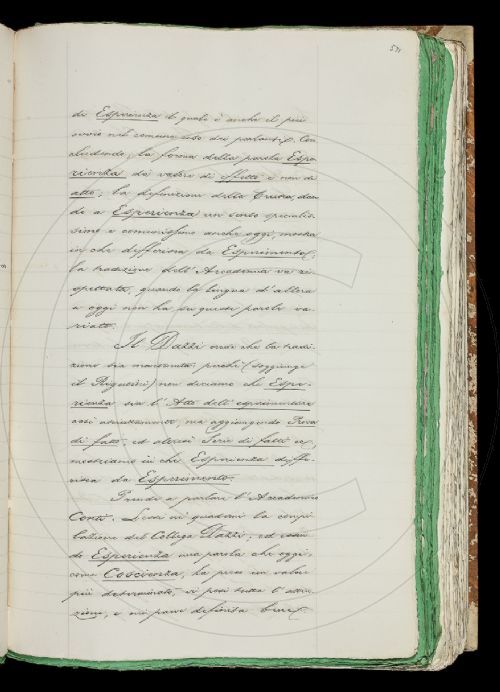 571
di Esperienza il quale è anche il più
ovvio nel comune uso dei parlanti. Con
cludendo, la forma della parola Espe
rienza dà valore di effetto e non di
atto; la definizione della Crusca, dan
do a Esperienza un senso specialis
simo e comunissimo anche oggi, mostra
in che differisca da Esperimento;
la tradizione dell'Accademia va ri
spettata, quando la lingua d'allora
a oggi non ha su queste parole va
riato.
Il Dazzi crede che la tradi
zione sia mantenuta perchè (soggiunge
il Rigutini) non diciamo che Espe-
rienza sia l'Atto dell'esperimentare
così assolutamente ma aggiungendo Prova
di fatto, ed altresì Serie di fatti ec.
mostriamo in che Esperienza diffe-
risca da Esperimento.
Prende a parlare l'Accademico
Conti. Lessi nei quaderni la compi
lazione del Collega Dazzi; ed essen
do Esperienza una parola che oggi,
come Coscienza, ha preso un valore
più determinato, vi posi tutta l'atten
zione, e mi parve definita bene